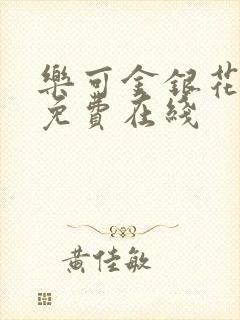 樂可金銀花
免費在綫
黃佳敏